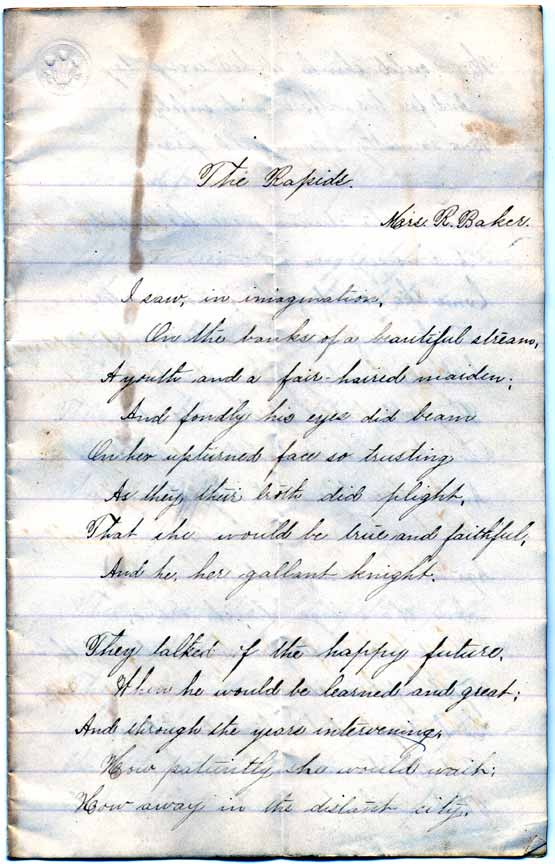 The Rapids.
Mars. R. Baker.
I saw, in imagination,
On the banks of a beautiful stream,
A youth and a fair-haired maiden;
And fondly his eyes did beam
On her upturned face so trusting
As they their troth did plight,
That she would be true and faithful,
And he, her gallant knight.
They talked of the happy future,
When he would be learned and great;
And through the years intervening,
How patiently she would wait;
How away in the distant city,